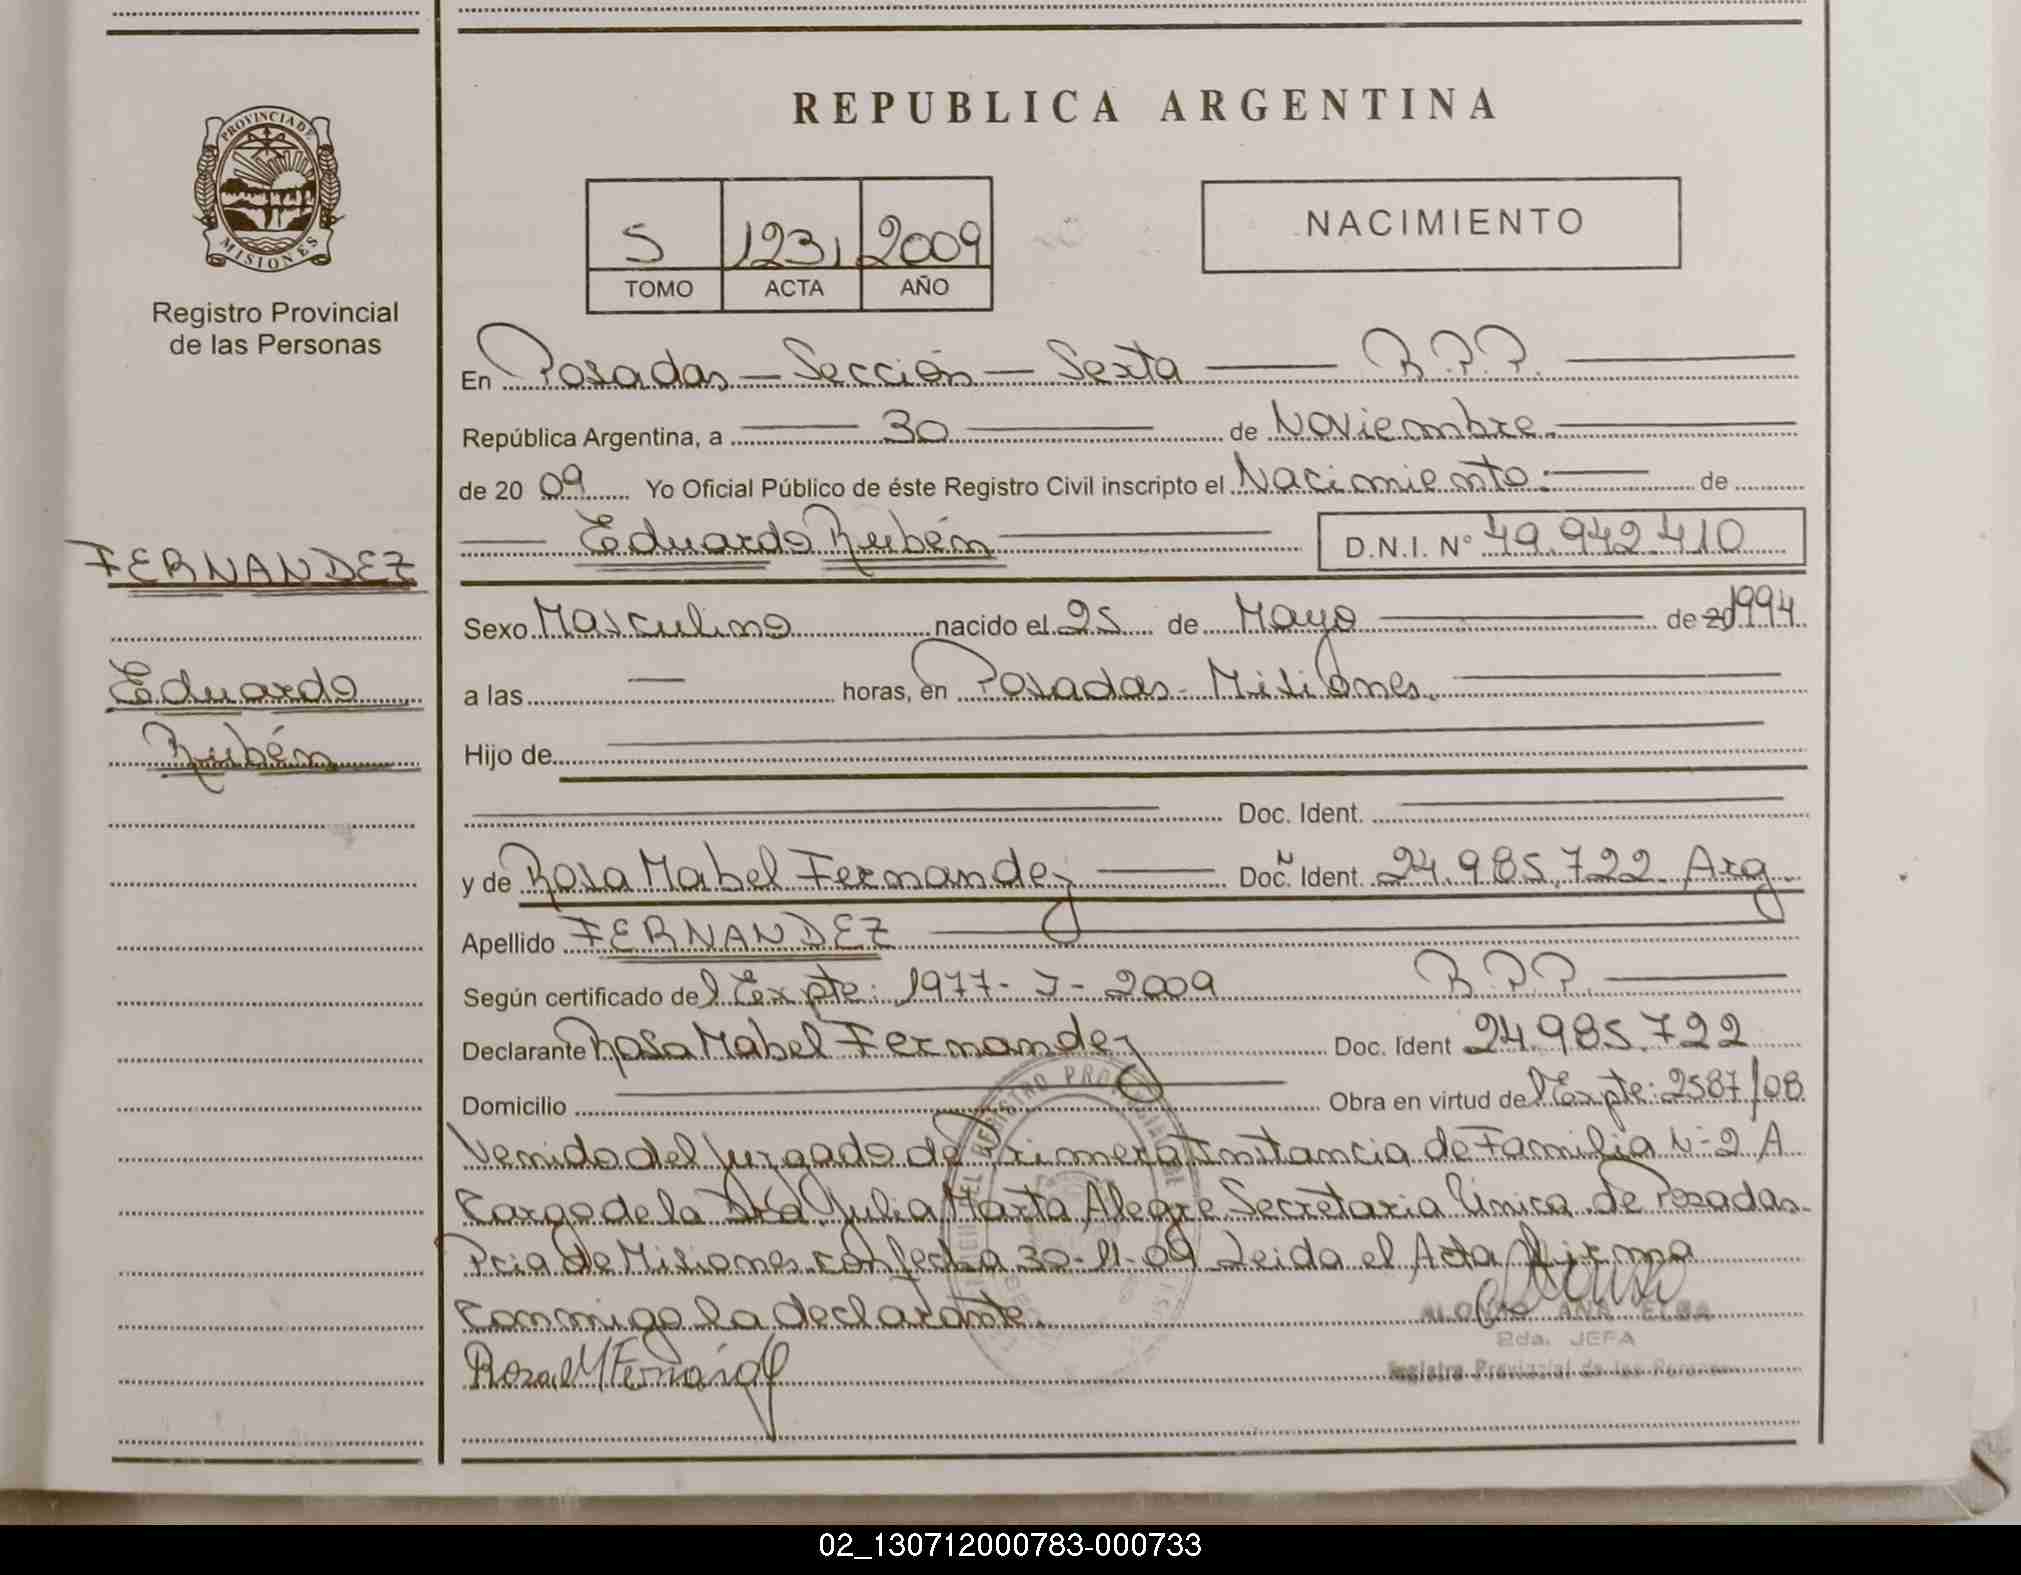 PROVINCIA DE
MISIONES
Registro Provincial
de las Personas
FERNANDEZ
Eduardo
Rubén
REPUBLICA ARGENTINA
5 1231 2009
TOMO ACTA AÑO
NACIMIENTO
En Posadas - Sección - Sexta — R.P.P.
República Argentina, a — 30 — de Noviembre.
de 20 09 Yo Oficial Público de éste Registro Civil inscripto el Nacimiento: — de
— Eduardo Rubén — D.N.I. N° 49.942.410
Sexo Masculino nacido el 25 de Mayo — de 20 1994.
a las — horas, en Posadas - Misiones.
Hijo de
Doc. Ident.
y de Rosa Mabel Fernandez — Doc. Ident. 24.985.722 Arg.
Apellido FERNANDEZ
Según certificado del Expte: 1977-J-2009 R.P.P.
Declarante Rosa Mabel Fernandez Doc. Ident 24.985.722
Domicilio — Obra en virtud del Expte: 2587/08
Venido del Juzgado de Primera Instancia de Familia N-2 A
Cargo de la Dra. Julia Marta Alegre Secretaria Única de Posadas-
Pcia de Misiones con fecha 30-11-09 Leida el Acta firma
Conmigo la declarante.
Rosa M Fernandez
ALONSO ANA ELBA
2da. JEFA
Registro Provincial de las Personas
02_130712000783-000733